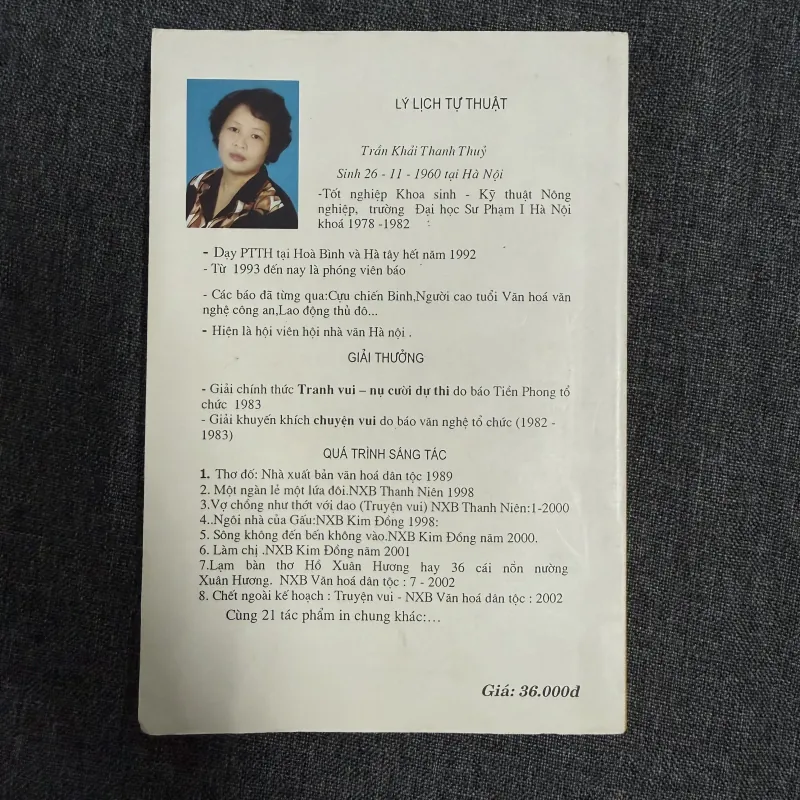 LÝ LỊCH TỰ THUẬT
Trần Khải Thanh Thuỷ
Sinh 26 - 11 - 1960 tại Hà Nội
-Tốt nghiệp Khoa sinh - Kỹ thuật Nông
nghiệp, trường Đại học Sư Phạm I Hà Nội
khoá 1978 -1982
- Dạy PTTH tại Hoà Bình và Hà tây hết năm 1992
- Từ 1993 đến nay là phóng viên báo
- Các báo đã từng qua:Cựu chiến Binh,Người cao tuổi Văn hoá văn
nghệ công an,Lao động thủ đô...
- Hiện là hội viên hội nhà văn Hà nội .
GIẢI THƯỞNG
- Giải chính thức Tranh vui – nụ cười dự thi do báo Tiền Phong tổ
chức 1983
- Giải khuyến khích chuyện vui do báo văn nghệ tổ chức (1982 -
1983)
QUÁ TRÌNH SÁNG TÁC
1. Thơ đố: Nhà xuất bản văn hoá dân tộc 1989
2. Một ngàn lẻ một lứa đôi.NXB Thanh Niên 1998
3.Vợ chồng như thớt với dao (Truyện vui) NXB Thanh Niên:1-2000
4..Ngôi nhà của Gấu:NXB Kim Đồng 1998:
5. Sông không đến bến không vào.NXB Kim Đồng năm 2000.
6. Làm chị .NXB Kim Đồng năm 2001
7.Lạm bàn thơ Hồ Xuân Hương hay 36 cái nõn nường
Xuân Hương. NXB Văn hoá dân tộc : 7 - 2002
8. Chết ngoài kế hoạch : Truyện vui - NXB Văn hoá dân tộc : 2002
Cùng 21 tác phẩm in chung khác:...
Giá: 36.000đ